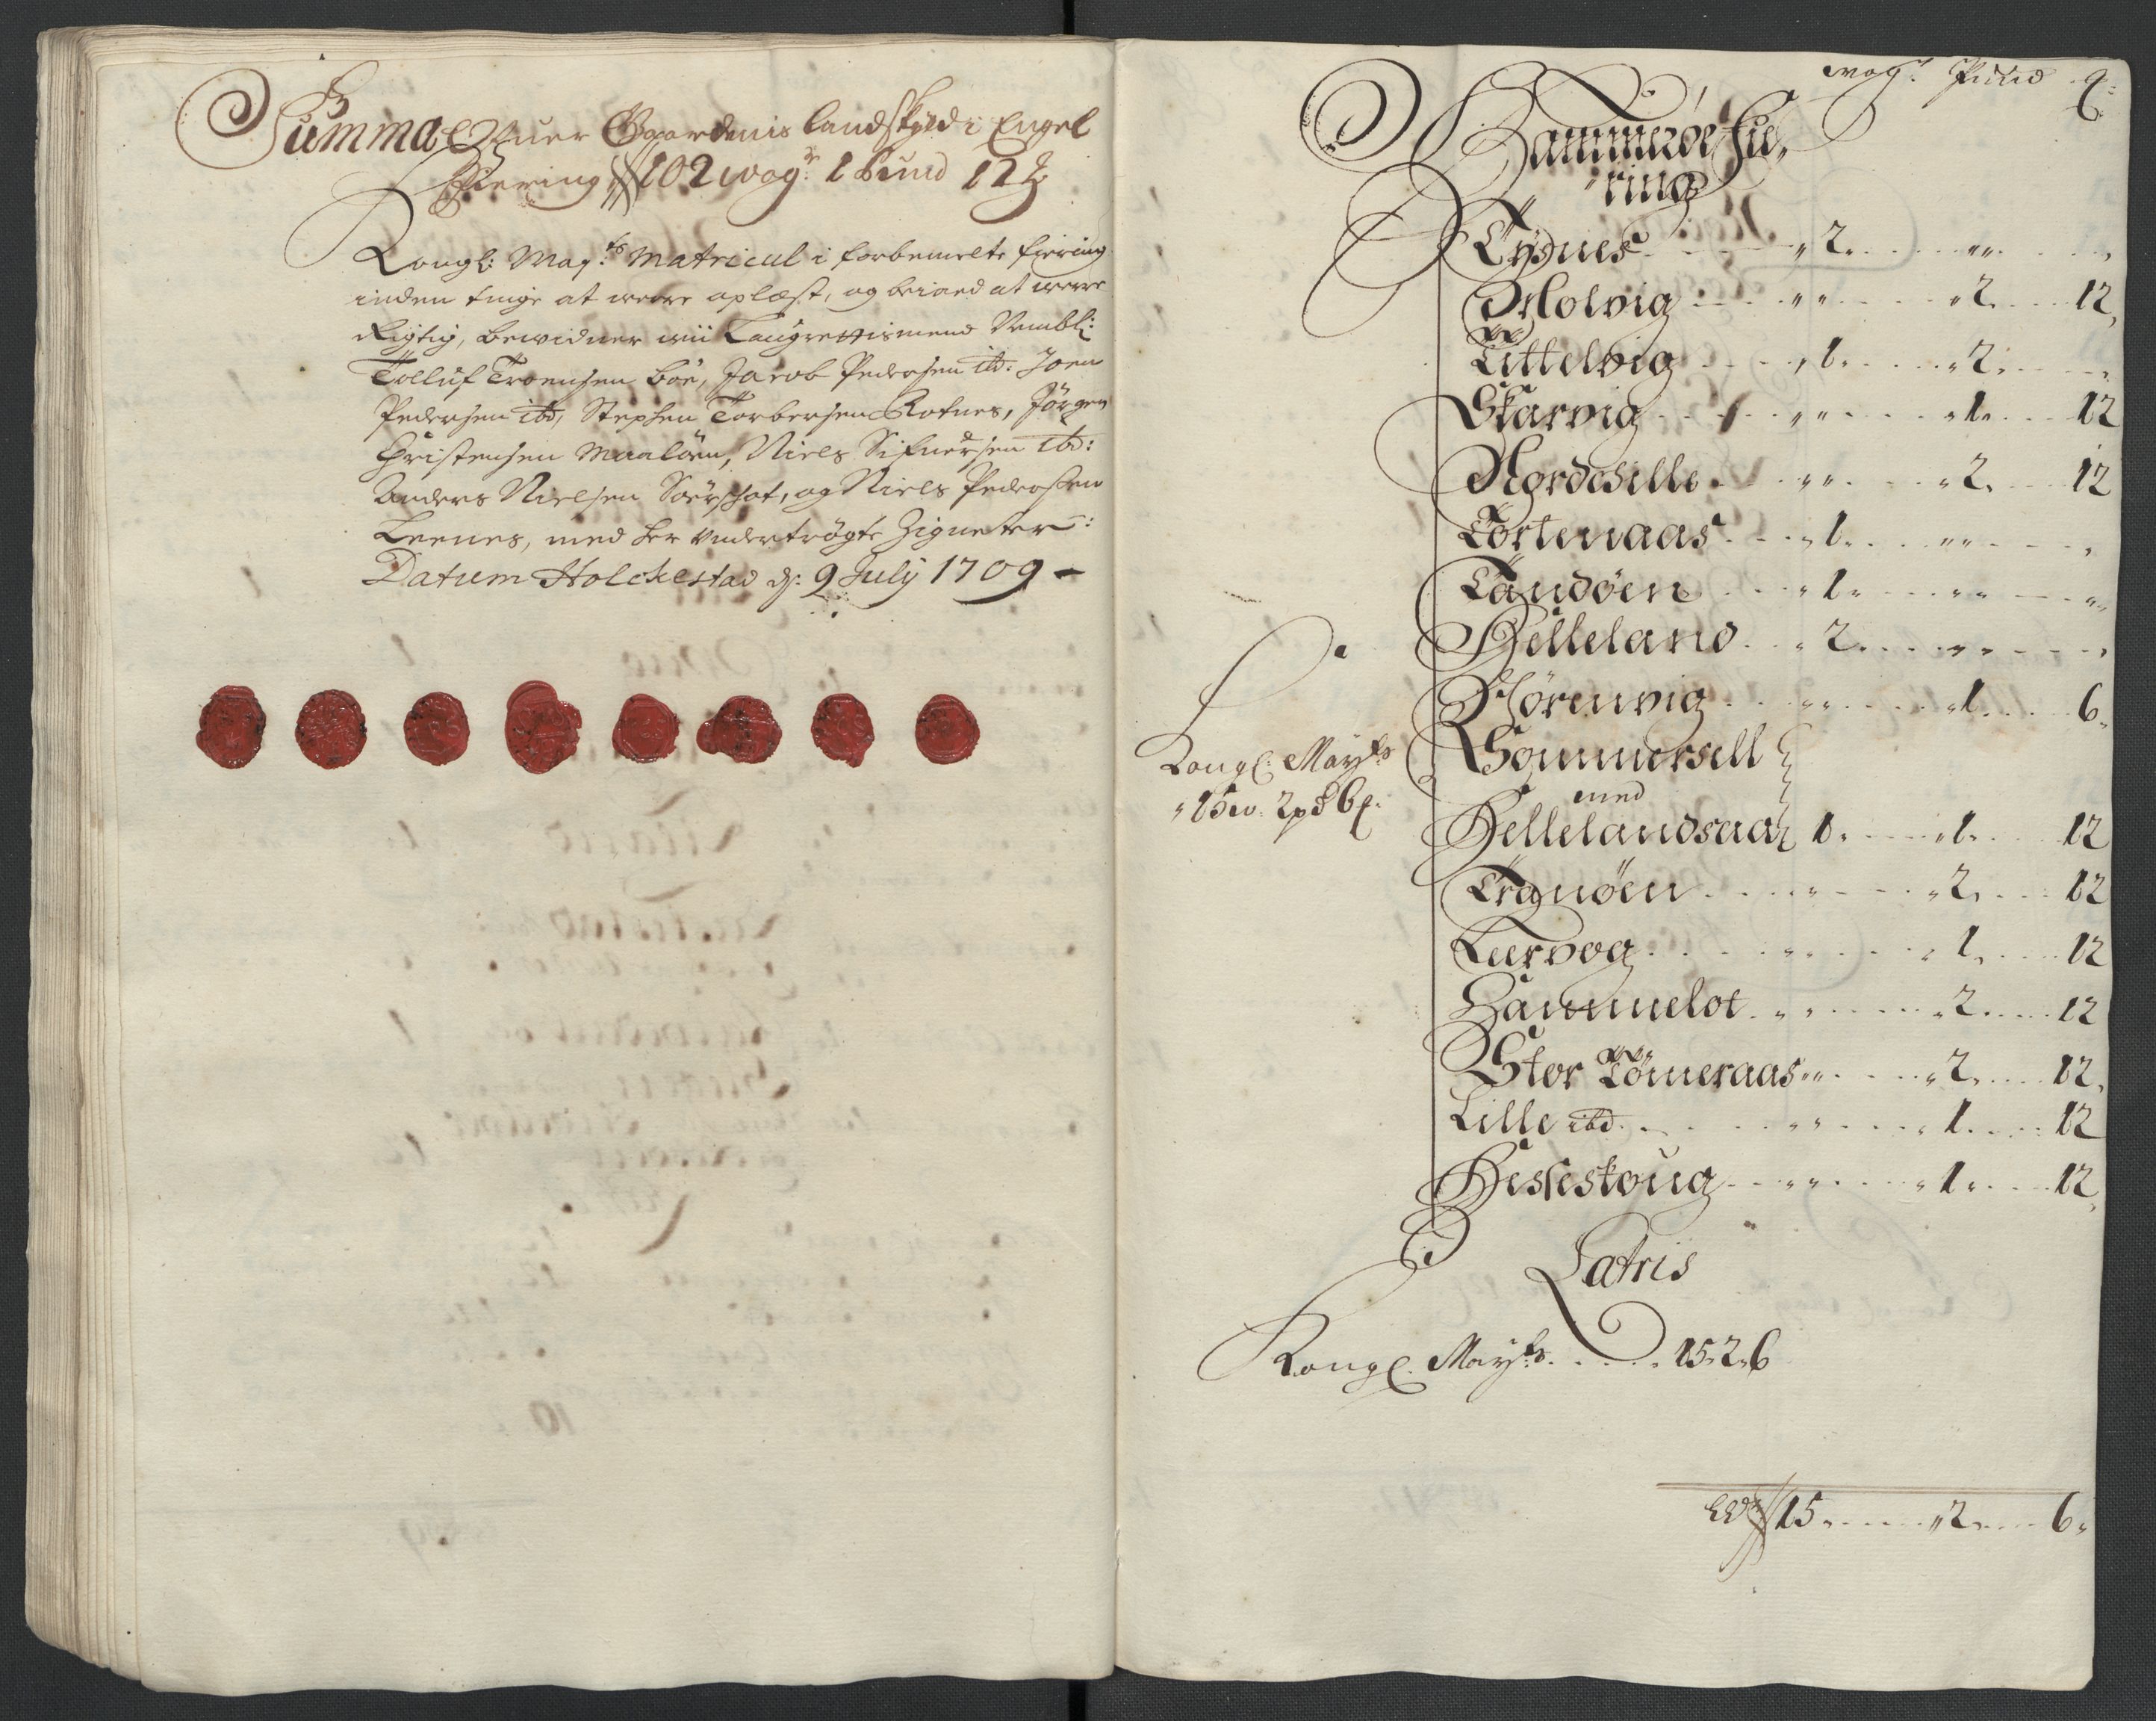 Summa Ofuer Gaardenis landskyld i Engel
Fiering 102 wog: 1 Pund 12 ℔
Kongl: May:ts Matricul i forbemelte fiering
inden tinge at were oplæst, og beiaed at were
Rigtig, bewidner wii Laugrettismend Nembl:
Tolluf Troensen Böe, Jacob Pedersen ibd: Joen
Pedersen ibd, Stephen Torbersen Rotnes, Jörgen
Christensen Maalöen, Niels Sifuersen ibd:
Anders Nielsen Soerschot, og Niels Pedersen
Leenes, med her undertrögte Zigneter:
Datum Holckestad d: 9 July 1709 -
wog: Pund ℔:
Hammeröe Fie,
ring
Tÿsnes - - - „ 2 . . . „„ . . . „
Molvig - - - „„ - - - „ 2 . . . 12,
Littelvig - - - „ 1 . . . „ 2 . . . „
Skarvig - - - „„ - - - „ 1 . . . 12
Nordesille . „„ . . . „ 2 . . . 12
Törtenaas - - „ 1 . . . „„ - - - „
Tandöen - - - „ 1 - . . . „„ - - - „
Helleland . . „ 2 . . . „„ - - - „
Hörenvig - - - „„ . . . „ 1 . . . 6 „
Sommersell
med
Hellelandsaar 1 . . . „ 1 . . . 12
Tranöen . . . „ - - - „ 2 , . . . 12
Leervog . . . „„ . . . „ 1 , . . . 12
Hammelot . „„ . . . „ 2 . . . 12
Stor Tömeraas „„ . . . „ 2 . . . 12,
Lille ibd . . . „„ . . . „ 1 . . . 12
Hesseskoug - - „„ . . . „ 1 „ . . . 12,
Kongl: May:ts
„ 15 w. 2 pd 6 ℔.
Latris
Kongl. May:ts . . . . . 15. 2. 6
15 . . . . „ 2 . . . 6 „